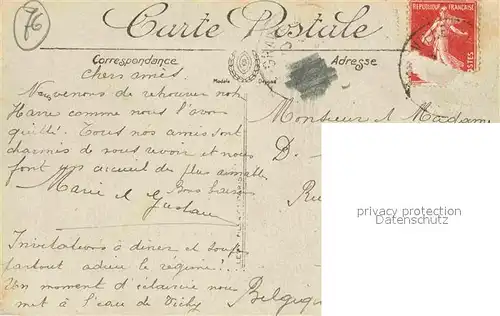 76
Carte Postale
Correspondance
Adresse
RÉPUBLIQUE FRANÇAISE
POSTES
Chers amis.
Nous venons de retrouver notre
Havre comme nous l'avons
quitté. Tous nos amis sont
charmés de nous revoir et nous
font un accueil des plus aimable
Bons baisers
Marie et Gustave
Invitations à diner et souper
partout adieu le régime!..
Un moment d'éclaircie nous
met à l'eau de Vichy
Monsieur et Madame
D.
Ru
Belgique
privacy protection
Datenschutz